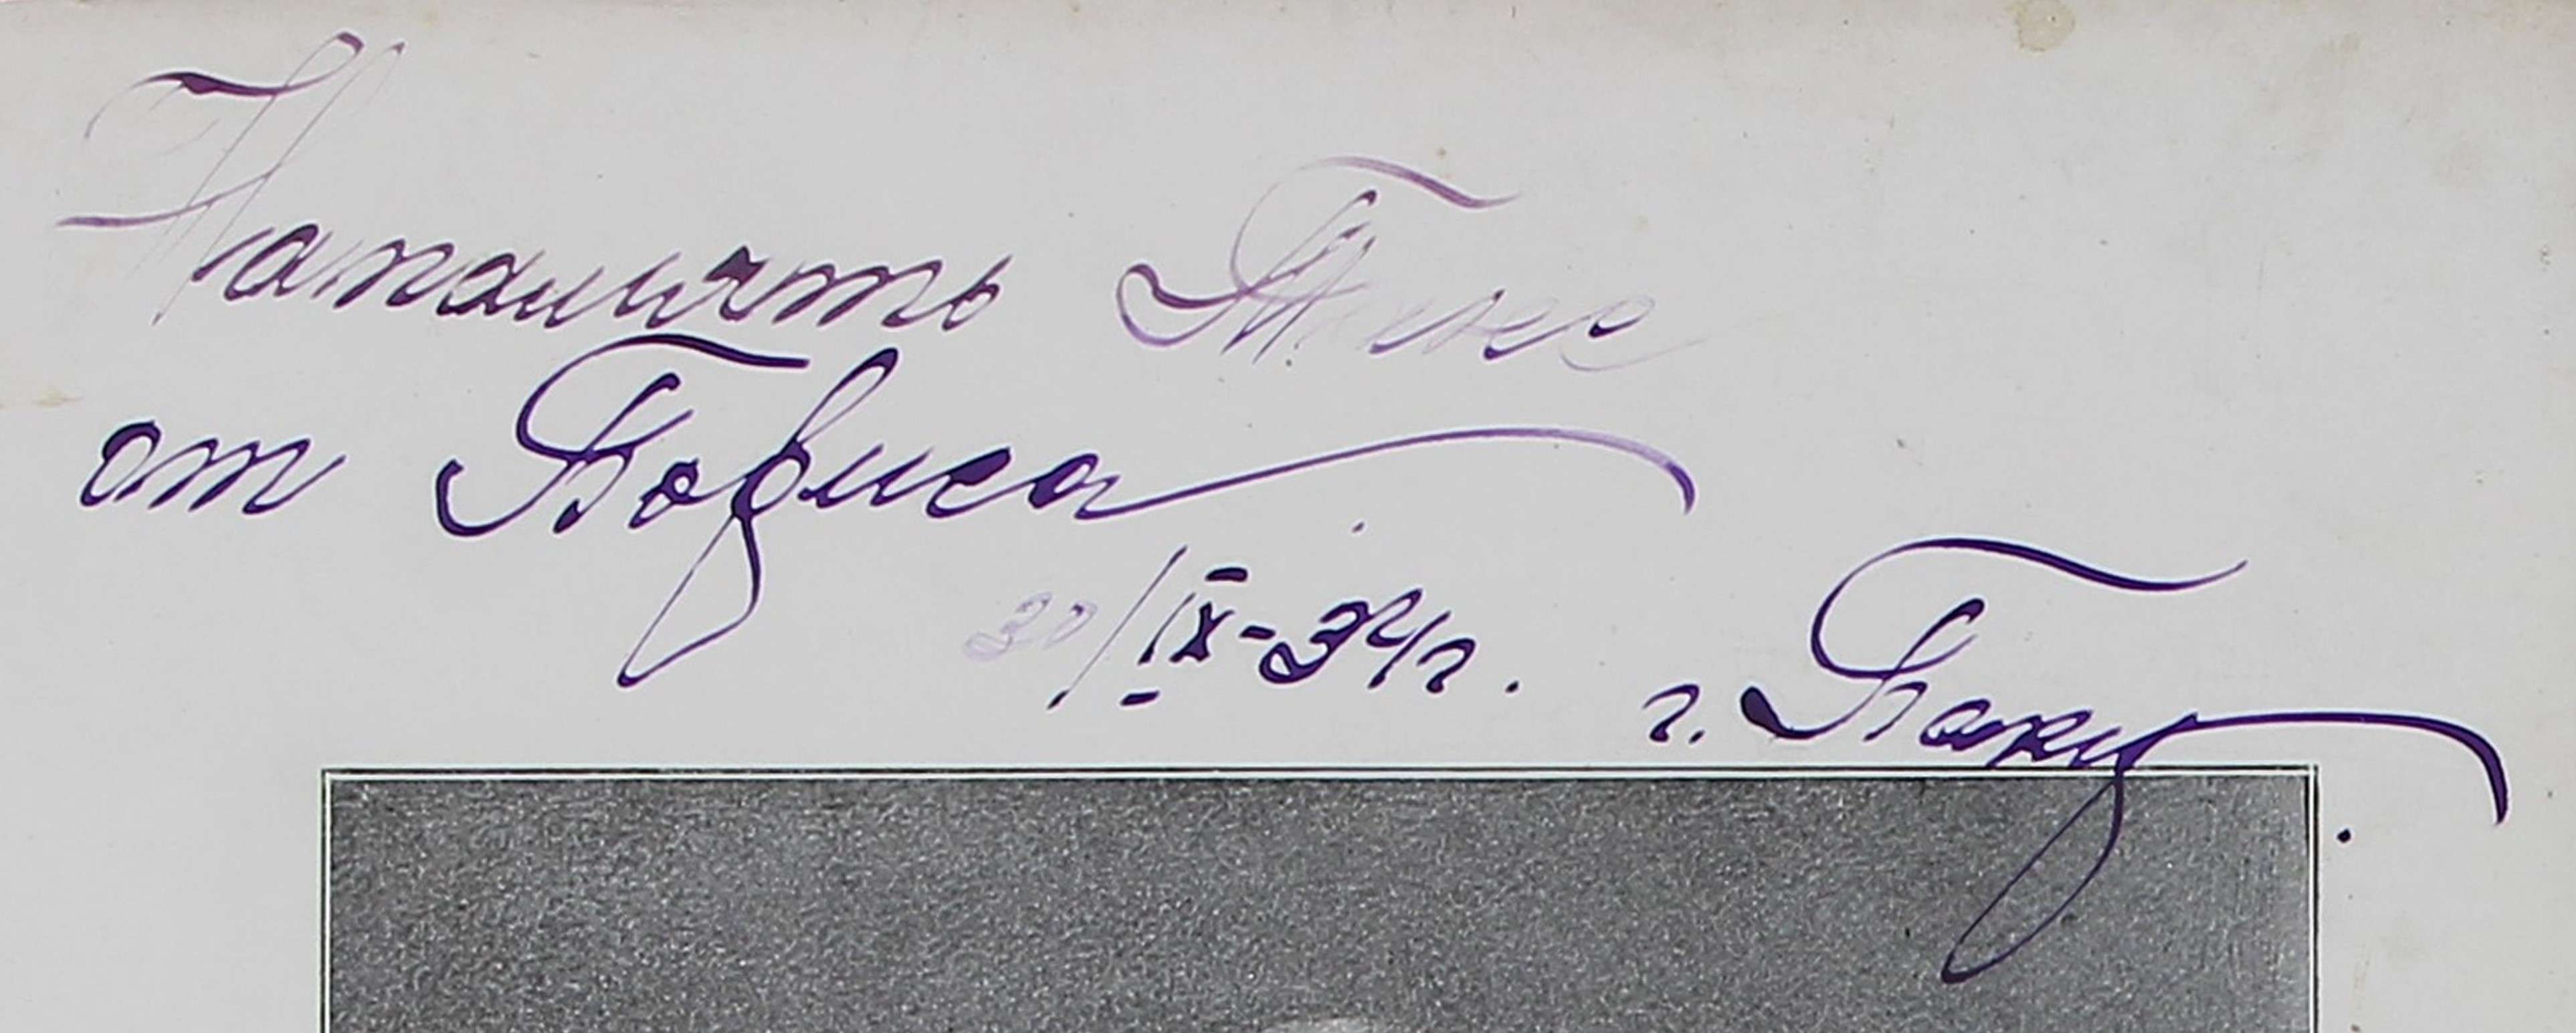 На память Тине
от Бориса
30/IX-34г. г. Баку.